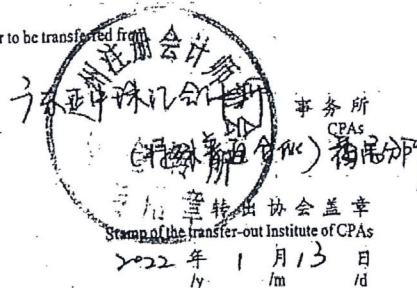 r to be transferred from
州注册会计师
广东 中珠江会计师
事务所
CPAs
(特殊普通合伙)
转出协会盖章
Stamp of the transfer-out Institute of CPAs
2022 年 1 月 13 日
/y /m /d